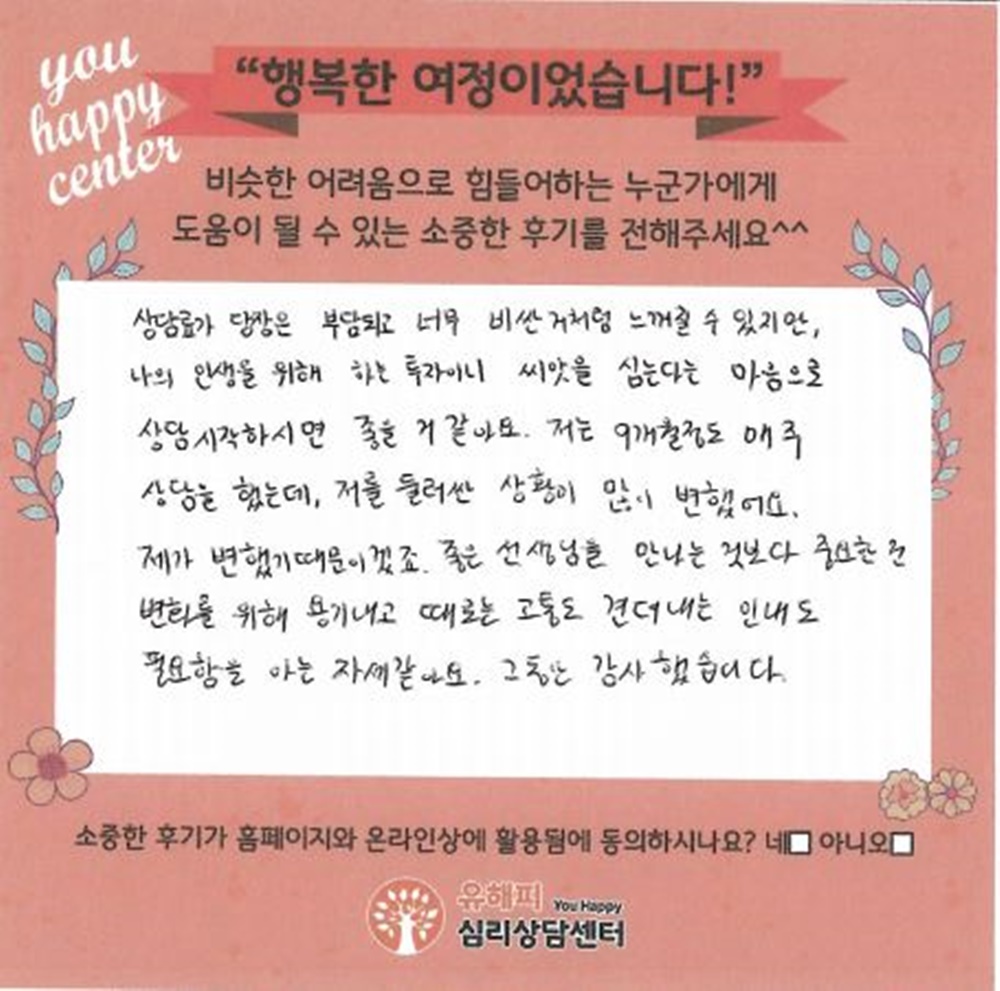 you
happy
center
“행복한 여정이었습니다!”
비슷한 어려움으로 힘들어하는 누군가에게
도움이 될 수 있는 소중한 후기를 전해주세요^^
상담료가 당장은 부담되고 너무 비싼거처럼 느껴질 수 있지만,
나의 인생을 위해 하는 투자이니 씨앗을 심는다는 마음으로
상담시작하시면 좋을 거 같아요. 저는 9개월정도 매주
상담을 했는데, 저를 둘러싼 상황이 많이 변했어요.
제가 변했기때문이겠죠. 좋은 선생님을 만나는 것보다 중요한 건
변화를 위해 용기내고 때로는 고통도 견뎌내는 인내도
필요함을 아는 자세같아요. 그동안 감사했습니다.
소중한 후기가 홈페이지와 온라인상에 활용됨에 동의하시나요? 네□ 아니오□
유해피 You Happy
심리상담센터